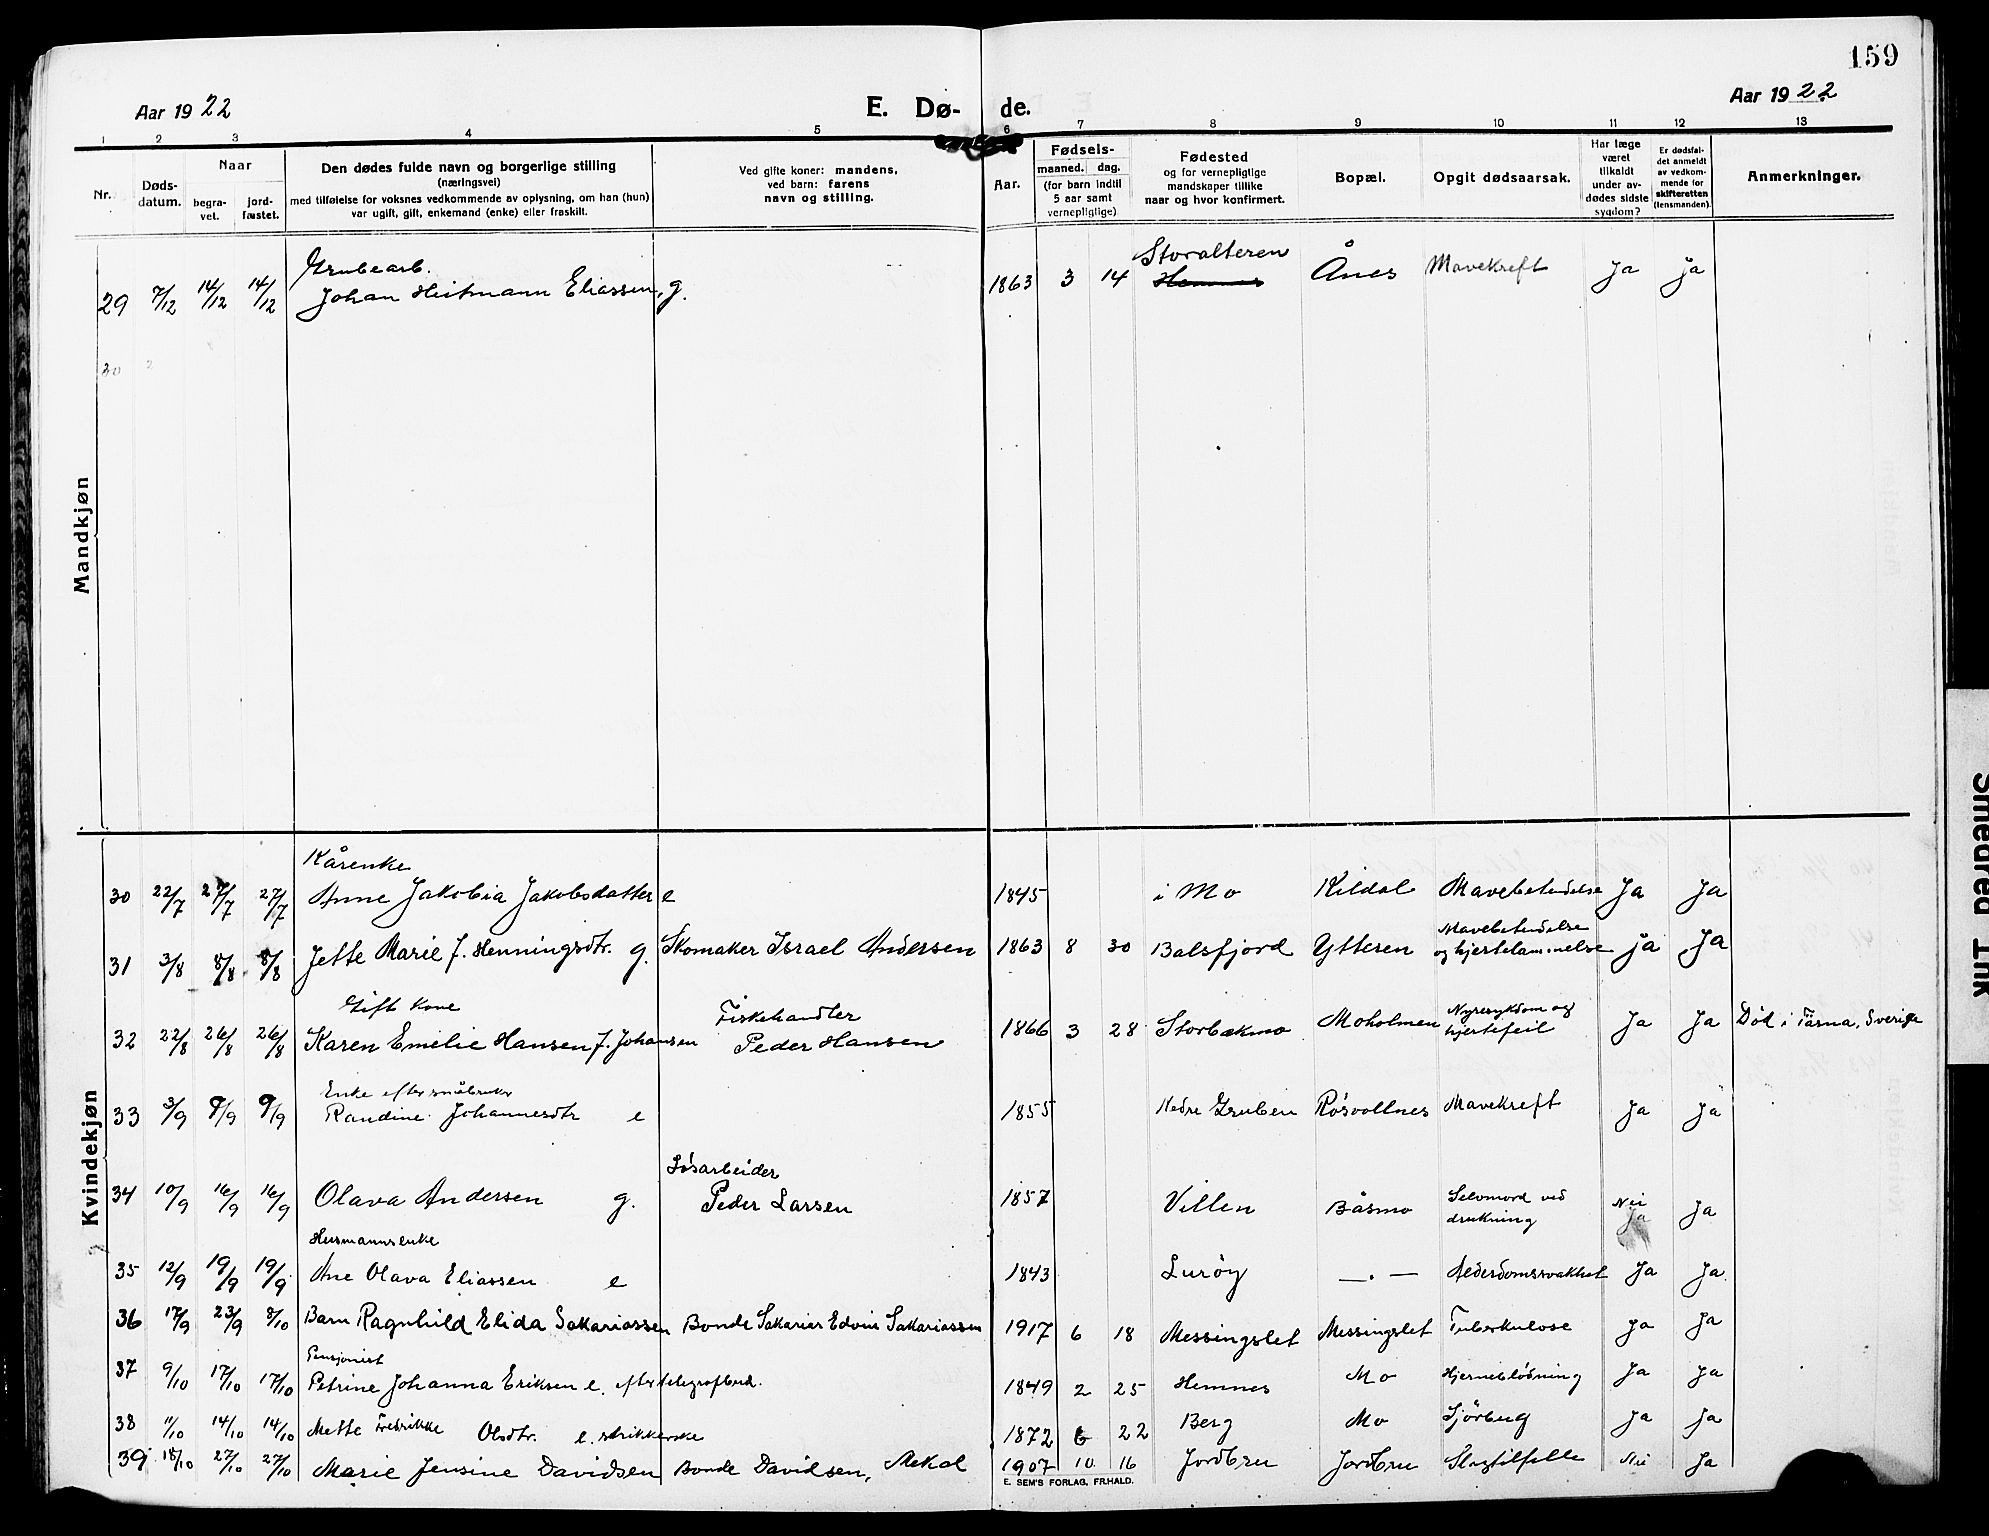 159
Aar 1922
E. Dø- de.
Aar 1922
1 2 3 4 5 6 7 8 9 10 11 12 13
Nr. Døds-datum. Naar begra-vet. jord-fæstet. Den dødes fulde navn og borgerlige stilling (næringsvei) med tilføielse for voksnes vedkommende av oplysning, om han (hun) var ugift, gift, enkemand (enke) eller fraskilt. Ved gifte koner: mandens, ved barn: farens navn og stilling. Aar. Fødsels- maaned. dag. (for barn indtil 5 aar samt vernepligtige) Fødested og for vernepligtige mandskaper tillike naar og hvor konfirmert. Bopæl. Opgit dødsaarsak. Har læge været tilkaldt under av-dødes sidste sygdom? Er dødsfal-det anmeldt av vedkom-mende for skifteretten (lensmanden). Anmerkninger.
Mandkjøn
Grubearb. Storalteren
29 7/12 14/12 14/12 Johan Heitmann Eliassen, g. 1863 3 14 Hemnes Ånes Mavekreft Ja Ja
30 2
Kvindekjøn
Kårenke
30 22/7 27/7 27/7 Anne Jakobia Jakobsdatter e 1845 i Mo Kildal Mavebetendelse Ja Ja
31 3/8 8/8 8/8 Jette Marie f. Henningsdtr. g. Skomaker Israel Andersen 1863 8 30 Balsfjord Ytteren Mavebetendelse og hjertelammelse Ja Ja
Gift kone Fiskehandler
32 22/8 26/8 26/8 Karen Emelie Hansen f. Johansen Peder Hansen 1866 3 28 Storbækmo Moholmen Nyresykdom og hjertefeil Ja Ja Død i Tärna, Sverige
Enke efter småbruker
33 3/9 9/9 9/9 Randine Johannesdtr e 1855 Nedre Gruben Røsvoltnes Mavekreft Ja Ja
Løsarbeider
34 10/9 16/9 16/9 Olava Andersen g. Peder Larsen 1857 Villen Båsmo Selvmord ved drukning Nei Ja Ja
Husmannsenke
35 12/9 19/9 19/9 Ane Olava Eliassen e 1843 Lurøy —〃— Alderdomssvakhet Ja Ja
36 17/9 23/9 8/10 Barn Ragnhild Elida Sakariassen Bonde Sakarias Edvin Sakariassen 1917 6 18 Messingslet Messingslet Tuberkulose Ja Ja
Pensjonist
37 9/10 17/10 17/10 Petrine Johanna Eriksen e. efter telegrafbud. 1849 2 25 Hemnes Mo Hjerneblødning Ja Ja
38 11/10 14/10 14/10 Mette Fredrikke Olsdtr. e. strikkerske 1872 6 22 Berg Mo Ja Ja
39 18/10 27/10 27/10 Marie Jensine Davidsen Bonde Davidsen, 1907 10 16 Jordbru Jordbru Slagtilfelle Nei Ja
E. SEM'S FORLAG, FR.HALD.
Smedred Ink